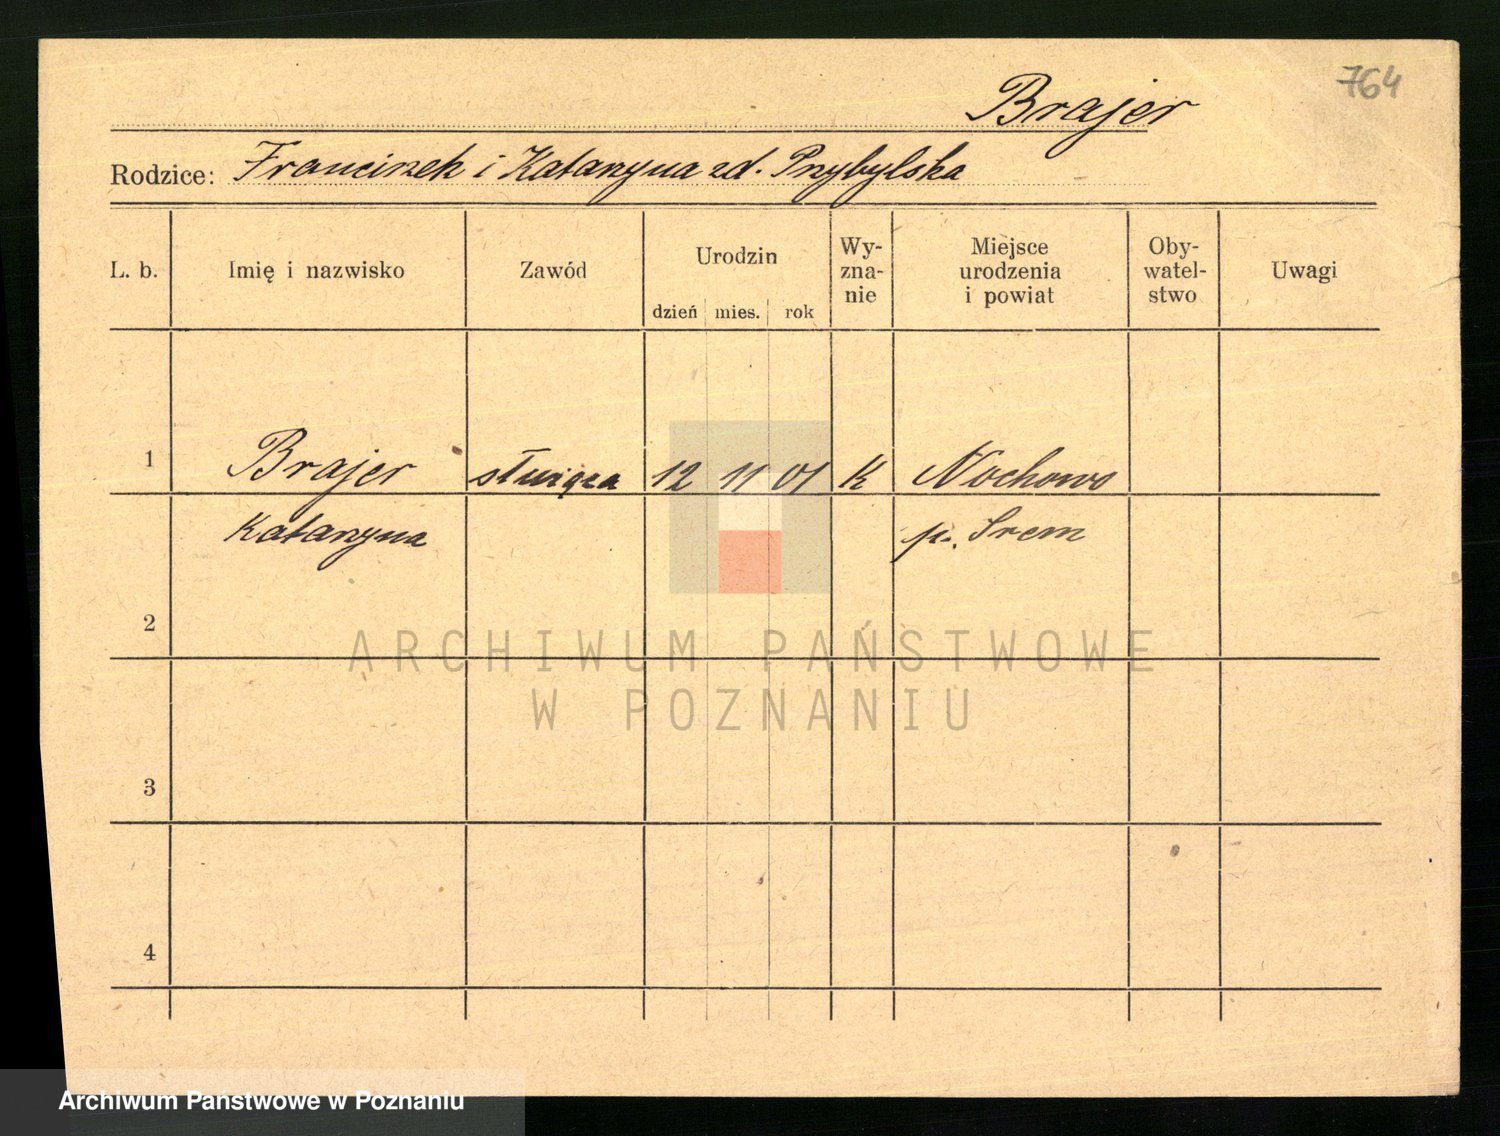 764
Brajer
Rodzice: Franciszek i Katarzyna zd. Przybylska
L. b. Imię i nazwisko Zawód Urodzin dzień mies. rok Wy-zna-nie Miejsce urodzenia i powiat Oby-watel-stwo Uwagi
1 Brajer służąca 12 11 01 K Nochowo
Katarzyna p. Śrem
2
ARCHIWUM PAŃSTWOWE
W POZNANIU
3
4
Archiwum Państwowe w Poznaniu